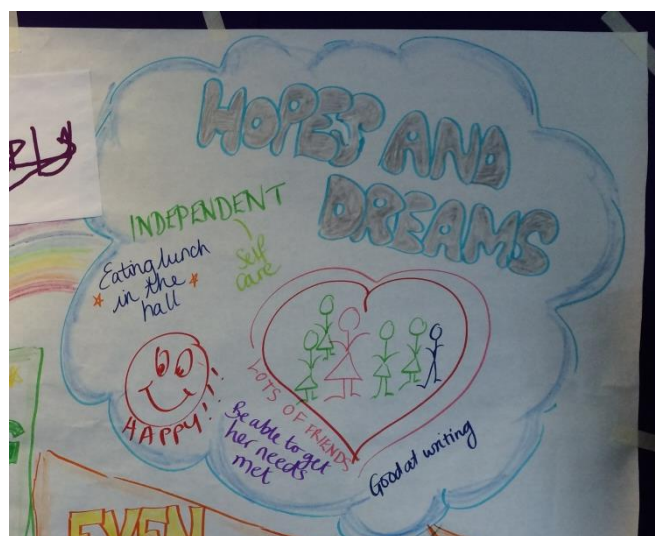 HOPES AND
DREAMS
INDEPENDENT
Self
care
Eating lunch
in the
hall
HAPPY!!!
LOTS OF FRIENDS
Be able to get
her needs
met
Good at writing
EVEN